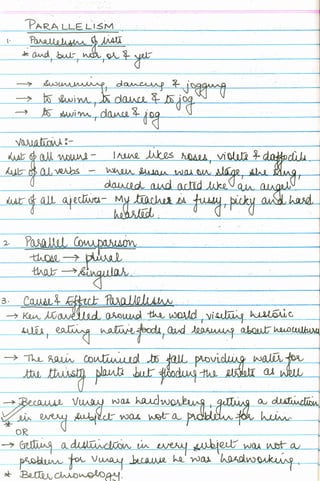 PARALLELISM
1. Parallelism of lists
* and, but, nor, or & yet
→ swimming, dancing & jogging
→ to swim, to dance & to jog
→ to swim, dance & jog
Variations:-
List of all nouns - Irene likes roses, violets & daffodils.
List of al verbs - When Susan was on stage, she sang,
danced and acted like an angel
List of all ajectives - My teacher is fussy, picky and hard
hearted.
2. Parallel Comparison
those → plural
that → singular
3. Cause & Effect Parallelism
→ Ken travelled around the world, visiting historic
sites, eating native foods, and learning about new cultures
→ The rain continued to fall providing water for
the thirsty plants but flooding the streets as well
→ Because Vinay was hardworking, getting a distinction
in every subject was not a problem for him.
* OR
→ Getting a distinction in every subject was not a
problem for Vinay because he was hardworking.
* Better chronology.